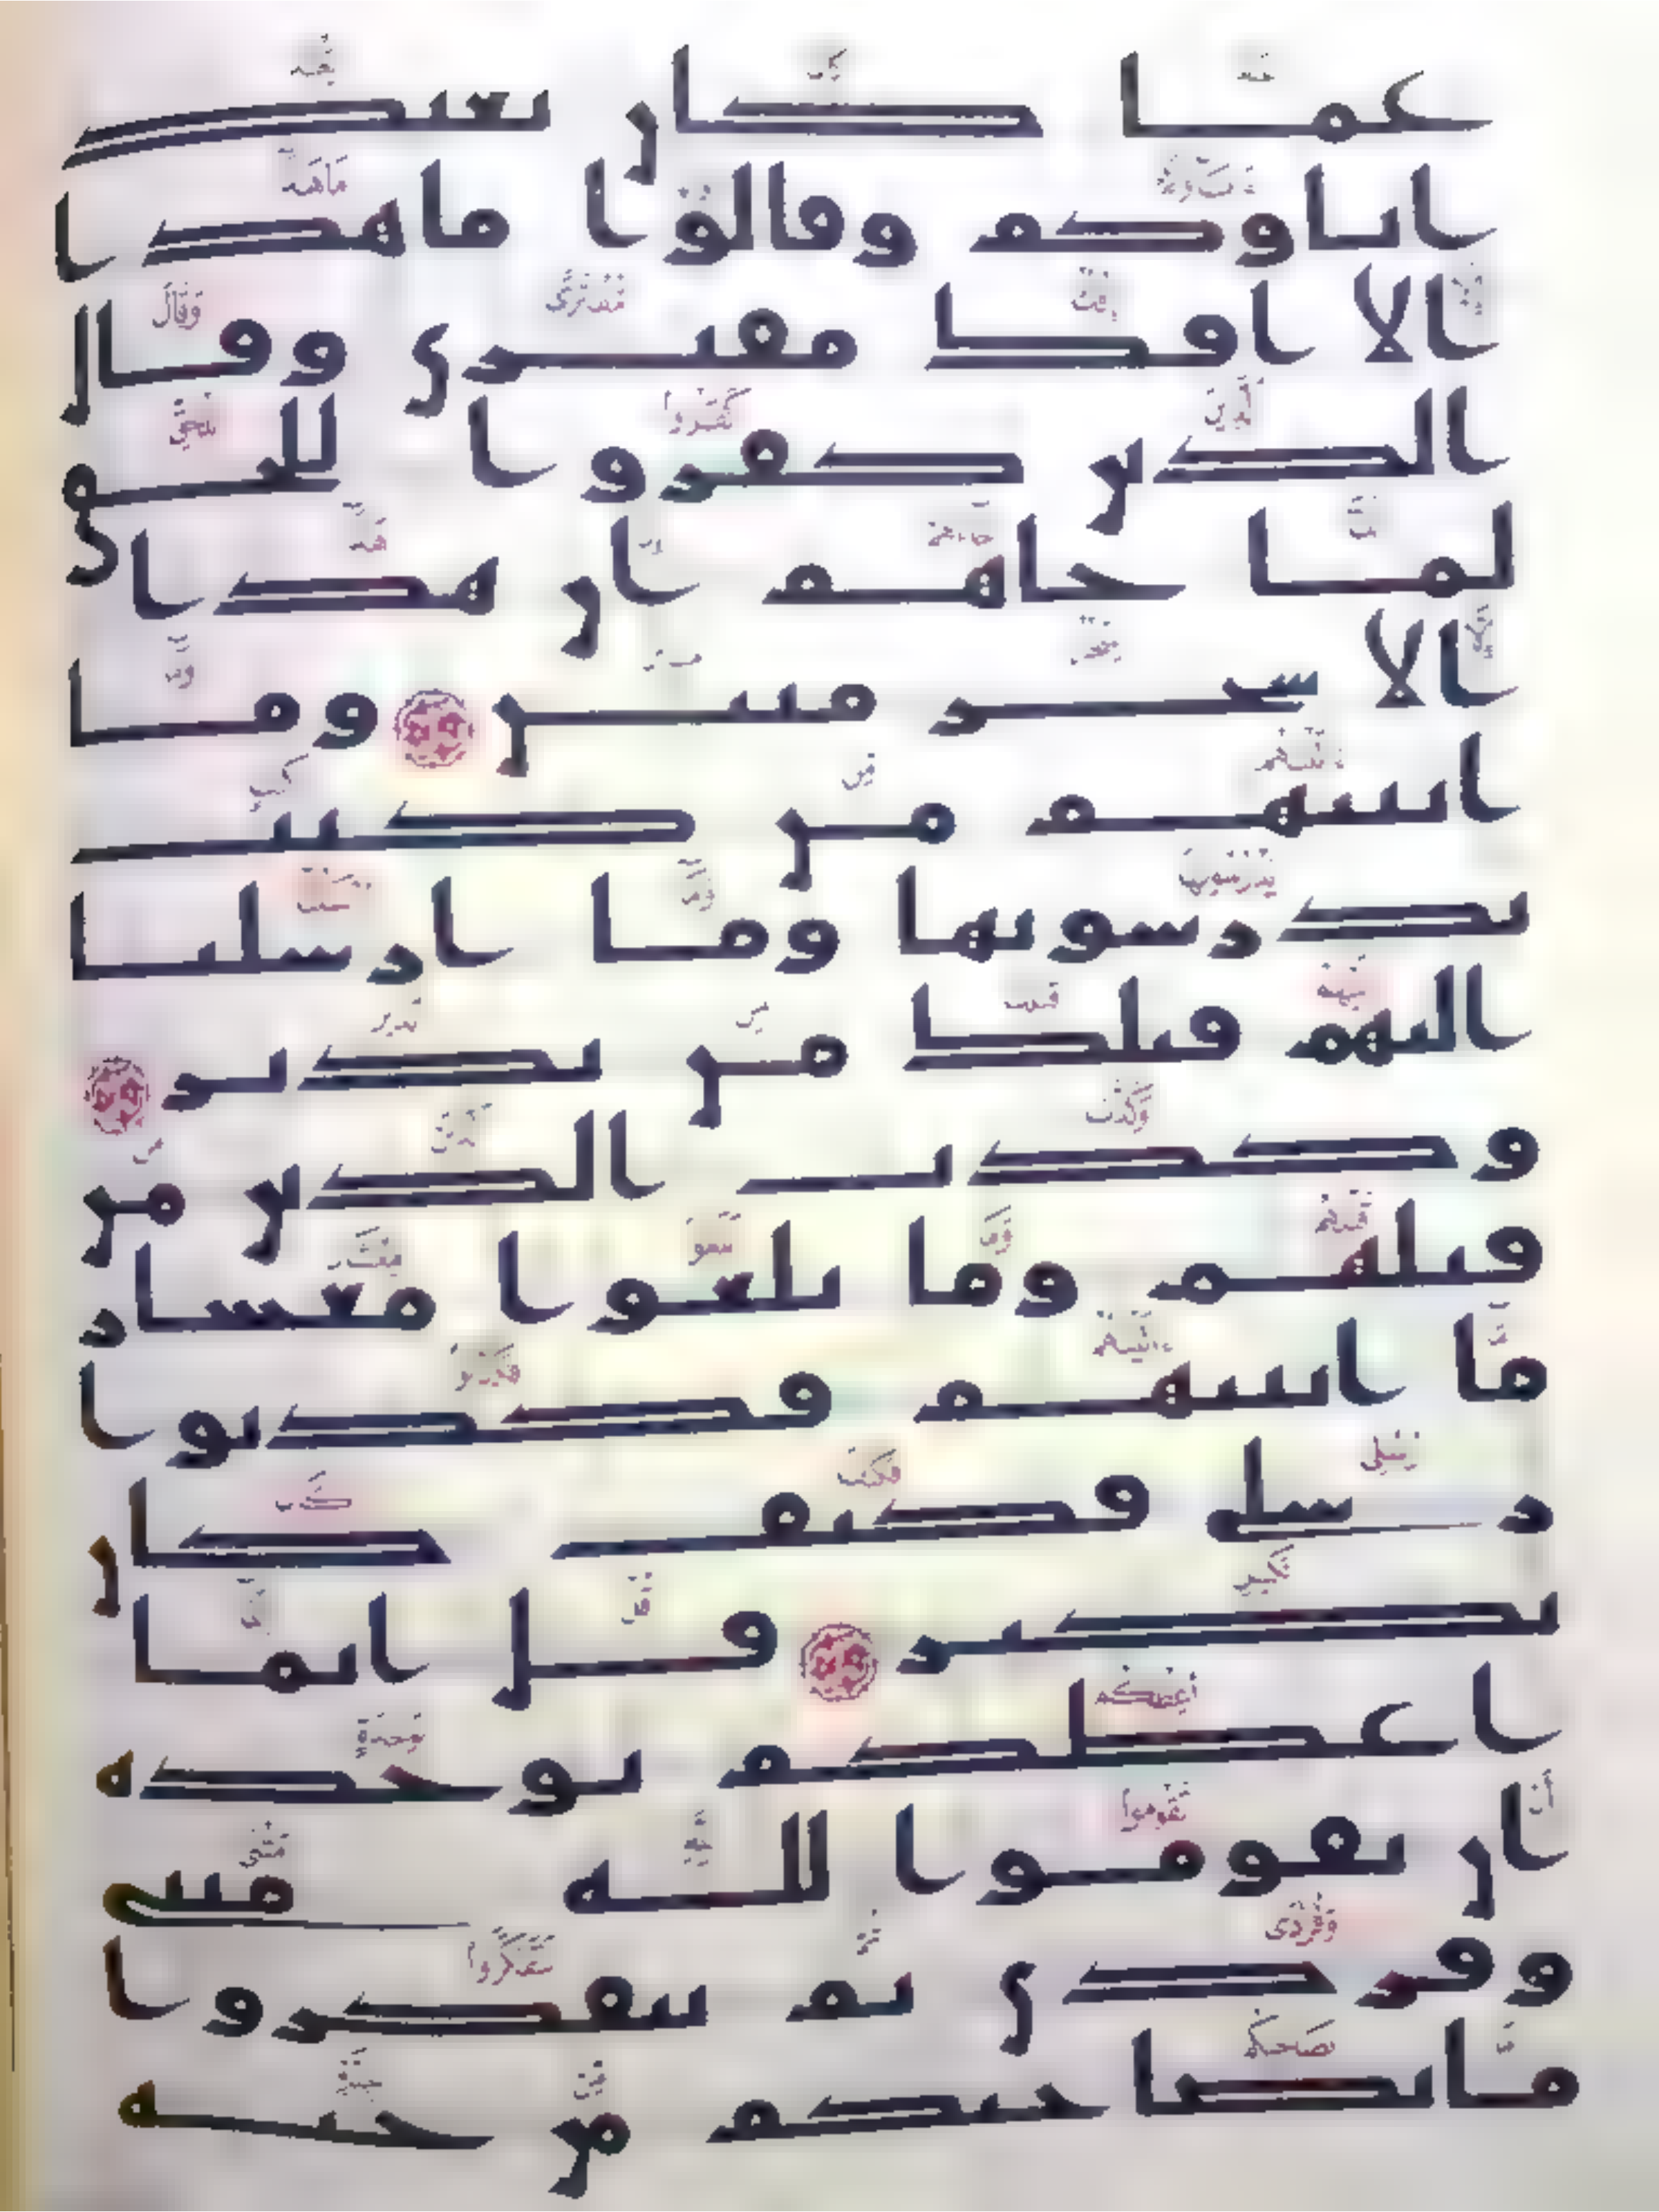 عما كان يعبد
اباوكم وقالوا ما هذا
الا افك مفترى وقال
الذين كفروا للحق
لما جاهم ان هذا
الا سحر مبين ۝ وما
اتينهم من كتب
يدرسونها وما ارسلنا
اليهم قبلك من نذير ۝
وكذب الذين من
قبلهم وما بلغوا معشار
ما اتينهم فكذبوا
رسلي فكيف كان
نكير ۝ قل انما
اعظكم بوحدة
ان تقوموا لله مثنى
وفردى ثم تتفكروا
ما بصاحبكم من جنة